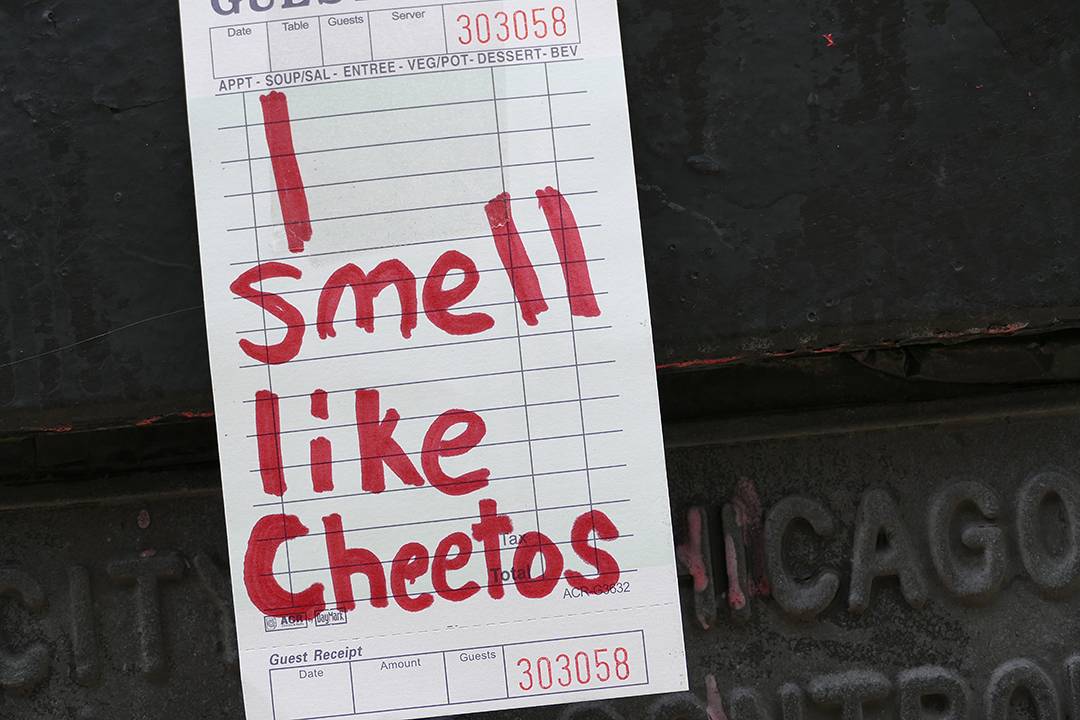 Date Table Guests Server 303058
APPT - SOUP/SAL - ENTREE - VEG/POT - DESSERT - BEV
I
smell
like
Cheetos
Tax
Total
ACR-G3632
ACR DayMark
Guest Receipt
Date Amount Guests 303058
CITY
CHICAGO